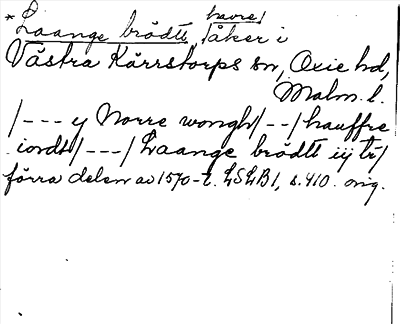 *Laange brödtt, /havre/åker i
Västra Kärrstorps sn, Oxie hd,
Malm. l.
/---y Norre wongh/--/hauffre
iordt/---/Laange brödtt iÿ tr/
förra delen av 1570-t. LSLB1, s. 410. orig.